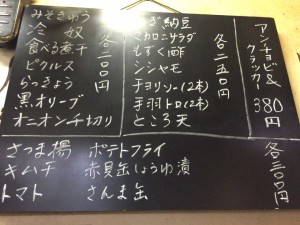 アンチョビ&
クラッカー
380円
ぎ納豆
マカロニサラダ
もずく酢
シシャモ
チョリソー(2本)
手羽トロ(2本)
ところ天
各二五〇円
みそきゅう
冷奴
食べる煮干
ピクルス
らっきょう
黒オリーブ
オニオンチ切り
各二〇〇円
さつま揚 ポテトフライ
キムチ 赤貝缶しょうゆ漬
トマト さんま缶
各三〇〇円